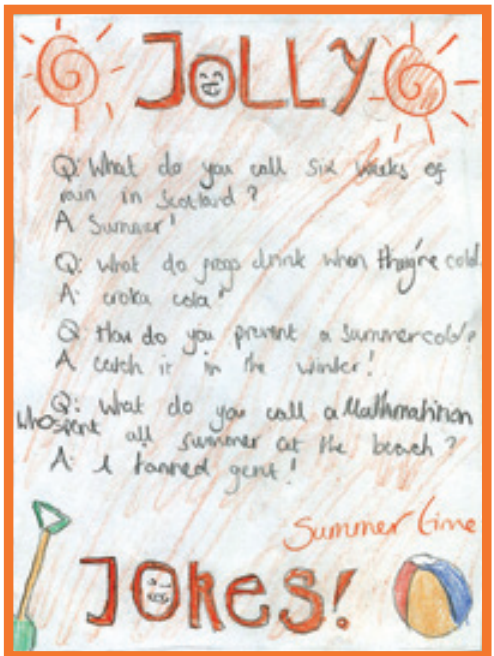 JOLLY
Q: What do you call six weeks of
rain in Scotland?
A Summer!
Q: what do frogs drink when they're cold
A: croka cola!
Q How do you prevent a summercold?
A catch it in the winter!
Q: What do you call a Mathmatition
whospent all summer at the beach?
A: A tanned gent!
Summer time
JOKes!